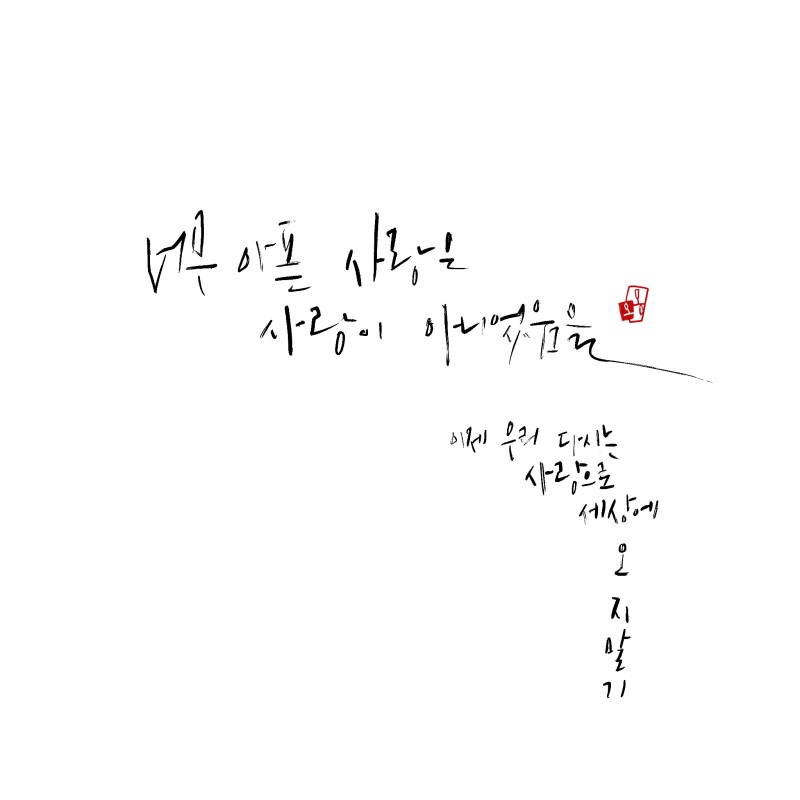 너무 아픈 사랑은
사랑이 아니었음을
이제 우리 다시는
사랑으로
세상에
오
지
말
기